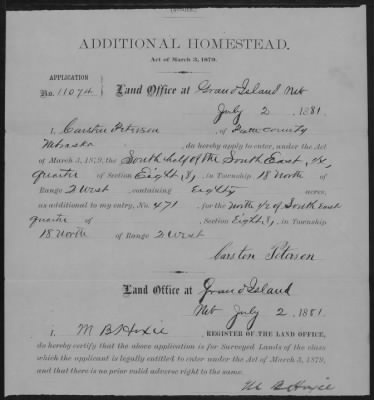 ADDITIONAL HOMESTEAD.
Act of March 3, 1879.
APPLICATION
No. 11074.
Land Office at Grand Island Neb
July 2 1881.
I, Carsten Peterson, of Platte County
Nebraska, do hereby apply to enter, under the Act
of March 3, 1879, the South half of the South East 1/4
quarter of Section Eight, 8, in Township 18 North of
Range 2 West, containing Eighty acres,
as additional to my entry, No. 471, for the North 1/2 of South East
quarter of Section Eight, 8, in Township
18 North of Range 2 West
Carsten Peterson
Land Office at Grand Island
Neb July 2 1881.
I, M B Hoxie, REGISTER OF THE LAND OFFICE,
do hereby certify that the above application is for Surveyed Lands of the class
which the applicant is legally entitled to enter under the Act of March 3, 1879,
and that there is no prior valid adverse right to the same.
M B Hoxie